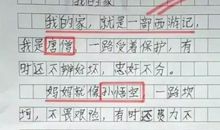 我的家，就是一部西游记，
我是唐僧，一路受着保护，有
时还不辨好坏，忠奸不分。
妈妈就像孙悟空，一路坎
坷，不畏艰险，有时还费力不